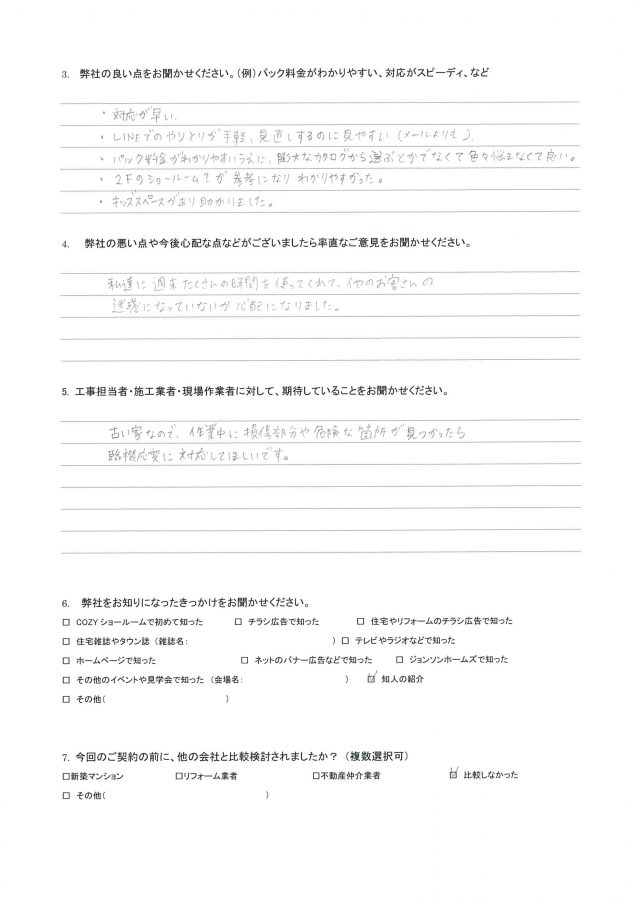 3. 弊社の良い点をお聞かせください。（例）パック料金がわかりやすい、対応がスピーディ、など
・対応が早い.
・LINEでのやりとりが手軽、見直しするのに見やすい（メールよりも）.
・パック料金がわかりやすいうえに、膨大なカタログから選ぶとかでなくて色々悩まなくて良い。
・2Fのショールーム？が参考になりわかりやすかった。
・キッズスペースがあり助かりました。
4. 弊社の悪い点や今後心配な点などがございましたら率直なご意見をお聞かせください。
私達に週末たくさんの時間を使ってくれて、他のお客さんの
迷惑になっていないか心配になりました。
5. 工事担当者・施工業者・現場作業者に対して、期待していることをお聞かせください。
古い家なので、作業中に損傷部分や危険な箇所が見つかったら
臨機応変に対応してほしいです。
6. 弊社をお知りになったきっかけをお聞かせください。
□ COZYショールームで初めて知った □ チラシ広告で知った □ 住宅やリフォームのチラシ広告で知った
□ 住宅雑誌やタウン誌（雑誌名： ）□ テレビやラジオなどで知った
□ ホームページで知った □ ネットのバナー広告などで知った □ ジョンソンホームズで知った
□ その他のイベントや見学会で知った（会場名： ）☑ 知人の紹介
□ その他（ ）
7. 今回のご契約の前に、他の会社と比較検討されましたか？（複数選択可）
□新築マンション □リフォーム業者 □不動産仲介業者 ☑ 比較しなかった
□ その他（ ）